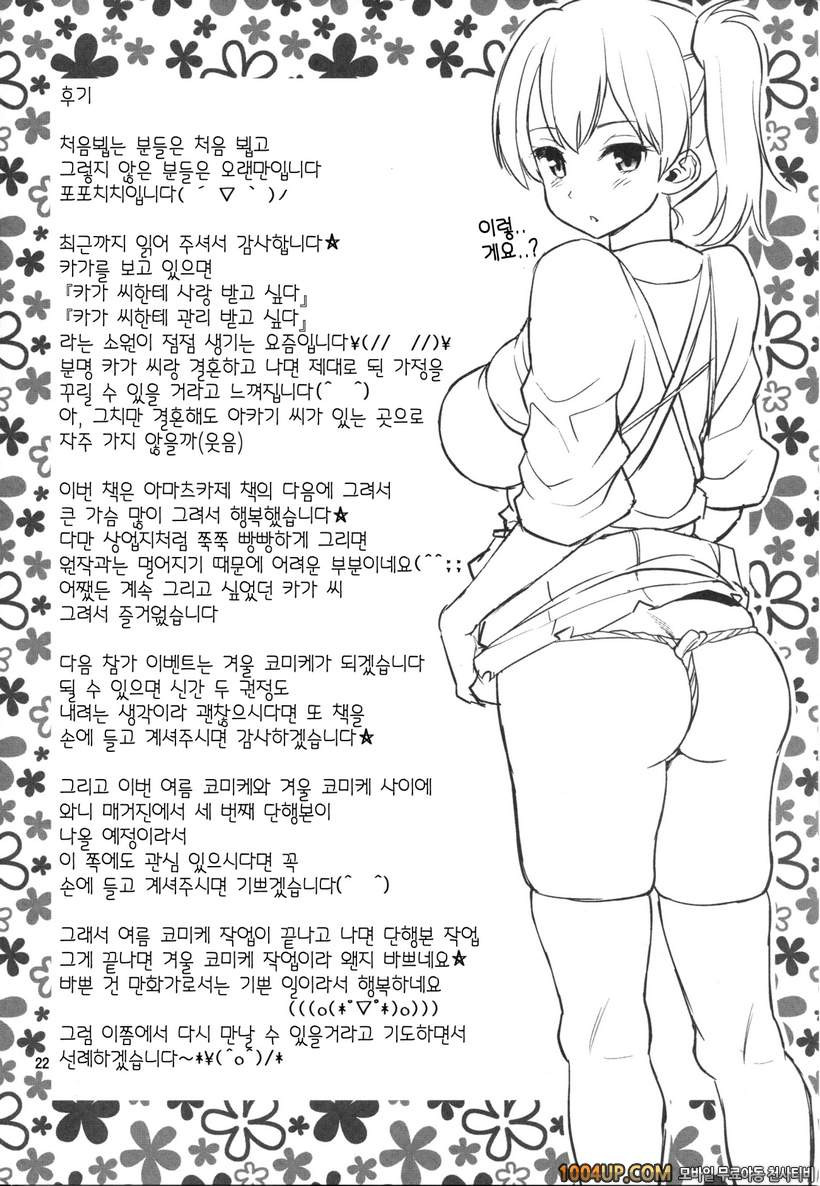 후기
처음뵙는 분들은 처음 뵙고
그렇지 않은 분들은 오랜만입니다
포포치치입니다( ´ ▽ ` )ﾉ
최근까지 읽어 주셔서 감사합니다★
카가를 보고 있으면
『카가 씨한테 사랑 받고 싶다』
『카가 씨한테 관리 받고 싶다』
라는 소원이 점점 생기는 요즘입니다¥(// //)¥
분명 카가 씨랑 결혼하고 나면 제대로 된 가정을
꾸릴 수 있을 거라고 느껴집니다(^ ^)
아, 그치만 결혼해도 아카기 씨가 있는 곳으로
자주 가지 않을까(웃음)
이번 책은 아마츠카제 책의 다음에 그려서
큰 가슴 많이 그려서 행복했습니다★
다만 상업지처럼 쭉쭉 빵빵하게 그리면
원작과는 멀어지기 때문에 어려운 부분이네요(^^;;
어쨌든 계속 그리고 싶었던 카가 씨
그려서 즐거웠습니다
다음 참가 이벤트는 겨울 코미케가 되겠습니다
될 수 있으면 신간 두 권정도
내려는 생각이라 괜찮으시다면 또 책을
손에 들고 계셔주시면 감사하겠습니다★
그리고 이번 여름 코미케와 겨울 코미케 사이에
와니 매거진에서 세 번째 단행본이
나올 예정이라서
이 쪽에도 관심 있으시다면 꼭
손에 들고 계셔주시면 기쁘겠습니다(^ ^)
그래서 여름 코미케 작업이 끝나고 나면 단행본 작업
그게 끝나면 겨울 코미케 작업이라 왠지 바쁘네요★
바쁜 건 만화가로서는 기쁜 일이라서 행복하네요
(((o(*ﾟ▽ﾟ*)o)))
그럼 이쯤에서 다시 만날 수 있을거라고 기도하면서
선례하겠습니다~*¥(^o^)/*
22
이렇..
게요..?
1004UP.COM 모바일 무료야동 천사티비